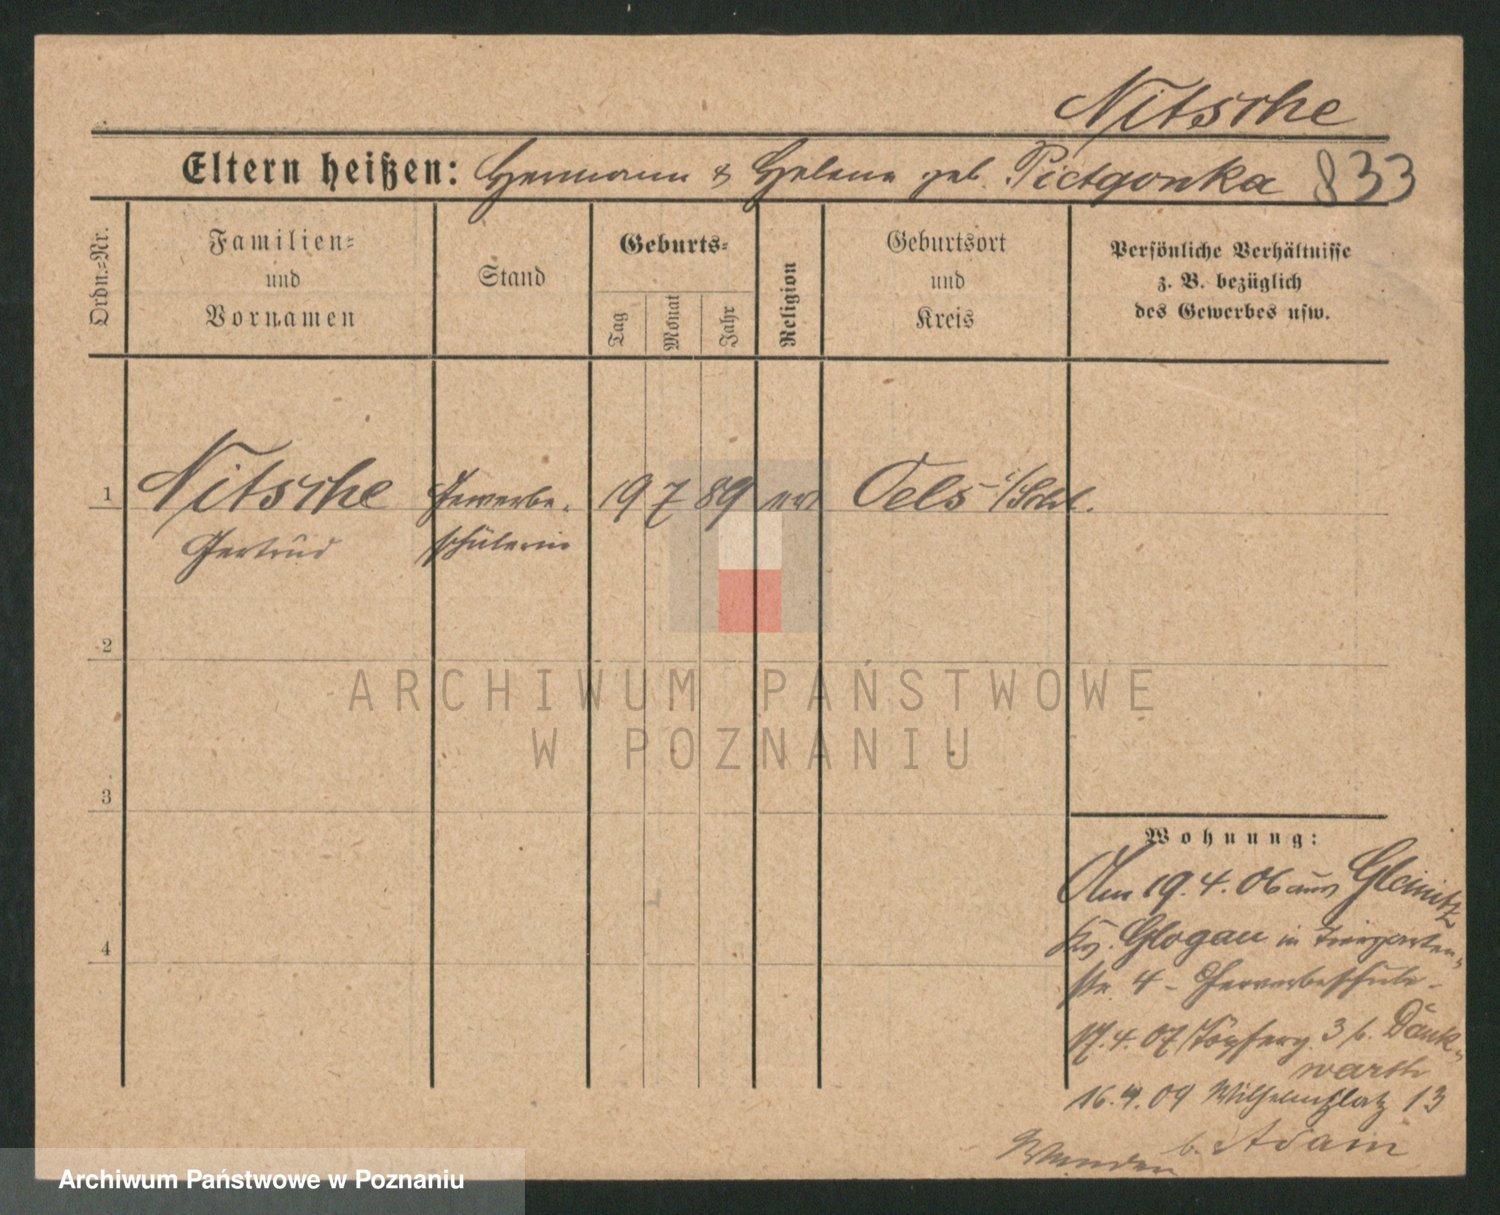 Nitsche
Eltern heißen: Hermann & Helene geb. Pietgonka 833
Ordn.-Nr.
Familien-
und
Vornamen
Stand
Geburts-
Tag
Monat
Jahr
Religion
Geburtsort
und
Kreis
Persönliche Verhältnisse
z. B. bezüglich
des Gewerbes usw.
1 Nitsche Gewerbe- 19 7 89 ev Oels i/Schl.
Gertrud schülerin
2
3
4
Wohnung:
Am 19.4.06 aus Gleinitz
Krs. Glogau in Tiergarten-
str. 4 - Gewerbeschule -
17.4.07 Töpferg. 3 b. Dank-
warth
16.4.09 Wilhelmplatz 13
b. Adam
Wenden
ARCHIWUM PAŃSTWOWE
W POZNANIU
Archiwum Państwowe w Poznaniu